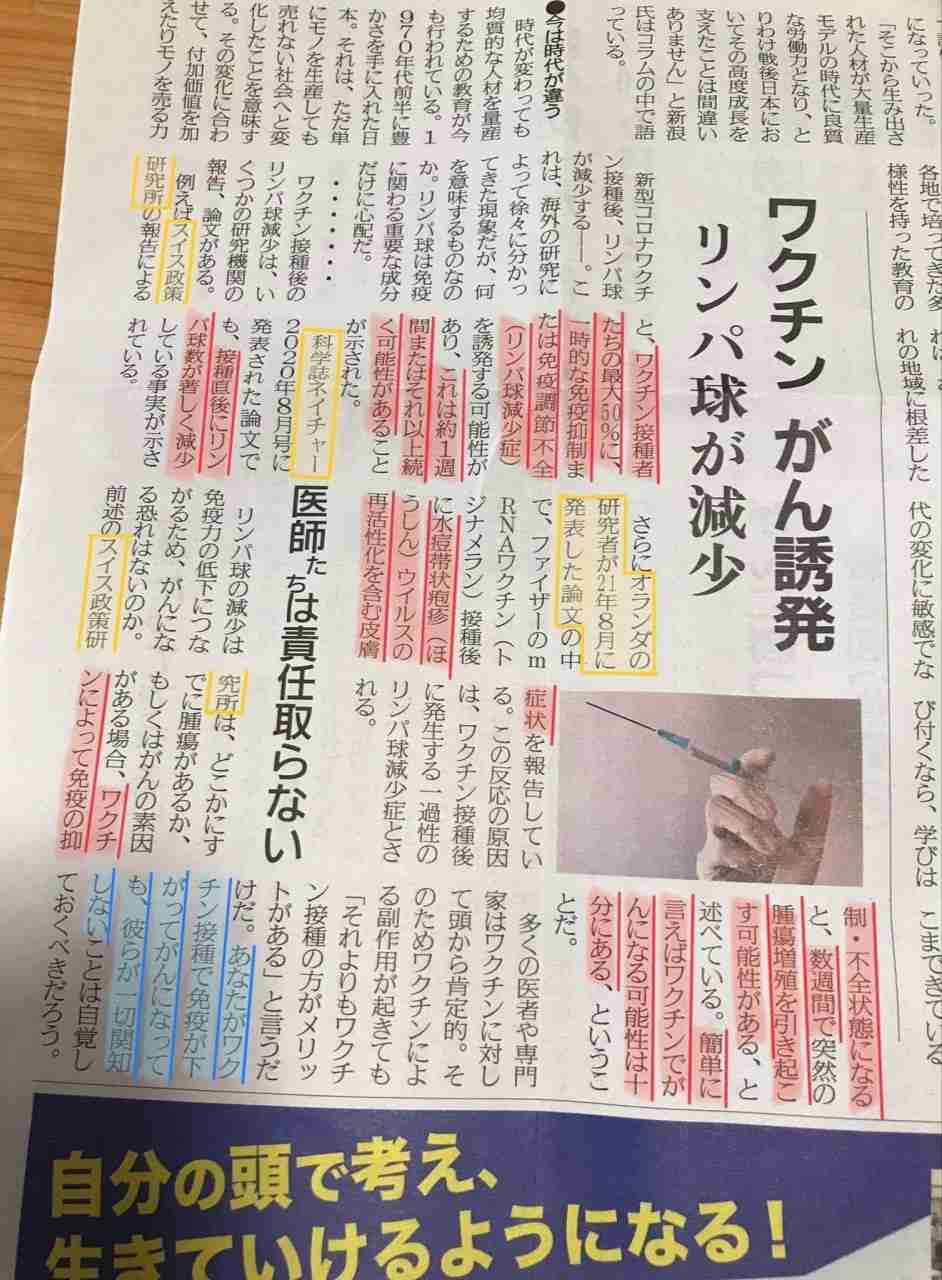 になっていった。
「そこから生み出さ
れた人材が大量生産
モデルの時代に良質
な労働力となり、と
りわけ戦後日本にお
いてその高度成長を
支えたことは間違い
ありません」と新浪
氏はコラムの中で語
っている。
●今は時代が違う
時代が変わっても
均質的な人材を量産
するための教育が今
も行われている。1
970年代前半に豊
かさを手に入れた日
本。それは、ただ単
にモノを生産しても
売れない社会へと変
化したことを意味す
る。その変化に合わ
せて、付加価値を加
えたりモノを売る力
各地で培ってきた多
様性を持った教育の
れの地域に根差した
代の変化に敏感でな
び付くなら、学びは
こまできている
ワクチン がん誘発
リンパ球が減少
新型コロナワクチ
ン接種後、リンパ球
が減少する――。こ
れは、海外の研究に
よって徐々に分かっ
てきた現象だが、何
を意味するものなの
か。リンパ球は免疫
に関わる重要な成分
だけに心配だ。
・・・・・・
ワクチン接種後の
リンパ球減少は、い
くつかの研究機関の
報告、論文がある。
例えばスイス政策
研究所の報告による
と、ワクチン接種者
たちの最大50%に、
一時的な免疫抑制ま
たは免疫調節不全
(リンパ球減少症)
を誘発する可能性が
あり、これは約1週
間またはそれ以上続
く可能性があること
が示された。
科学誌ネイチャー
2020年8月号に
発表された論文で
も、接種直後にリン
パ球数が著しく減少
している事実が示さ
れている。
さらにオランダの
研究者が21年8月に
発表した論文の中
で、ファイザーのm
RNAワクチン(ト
ジナメラン)接種後
に水痘帯状疱疹(ほ
うしん)ウイルスの
再活性化を含む皮膚
症状を報告してい
る。この反応の原因
は、ワクチン接種後
に発生する一過性の
リンパ球減少症とさ
れる。
医師たちは責任取らない
リンパ球の減少は
免疫力の低下につな
がるため、がんにな
る恐れはないのか。
前述のスイス政策研
究所は、どこかにす
でに腫瘍があるか、
もしくはがんの素因
がある場合、ワクチ
ンによって免疫の抑
制・不全状態になる
と、数週間で突然の
腫瘍増殖を引き起こ
す可能性がある、と
述べている。簡単に
言えばワクチンでが
んになる可能性は十
分にある、というこ
とだ。
多くの医者や専門
家はワクチンに対し
て頭から肯定的。そ
のためワクチンによ
る副作用が起きても
「それよりもワクチ
ン接種の方がメリッ
トがある」と言うだ
けだ。あなたがワク
チン接種で免疫が下
がってがんになって
も、彼らが一切関知
しないことは自覚し
ておくべきだろう。
自分の頭で考え、
生きていけるようになる!